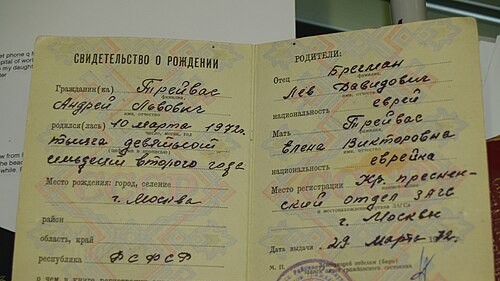 et phone q
pital of wor
n my daug
ter
СВИДЕТЕЛЬСТВО О РОЖДЕНИИ
Гражданин(ка) Трейвас
фамилия,
Андрей Львович
имя, отчество
родился(лась) 10 марта 1972г.
число, месяц, год
тысяча девятьсот
семьдесят второго года
Место рождения: город, селение
г. Москва
район
область, край
республика РСФСР
о чем в книге регистрации
РОДИТЕЛИ:
Отец Брегман
фамилия,
Лев Давидович
имя, отчество
национальность еврей
Мать Трейвас
фамилия,
Елена Викторовна
имя, отчество
национальность еврейка
Место регистрации Кр. преснен-
ский отдел ЗАГС
г. Москвы
Дата выдачи 29 марта 72г.
М. П.